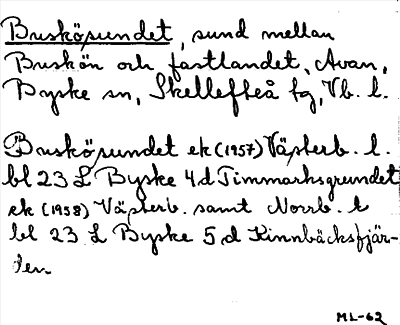 Busköpundet, sund mellan
Buskön och fastlandet, Avan,
Byske sn, Skellefteå tg, Vb. l.
Busköpundet ek (1957) Västerb. l.
bl 23 L Byske 4d Timmarhsgrundet
ek (1958) Västerb. samt Norrb. l
bl 23 L Byske 5d Kinnbäcksfjär-
den
ML-62